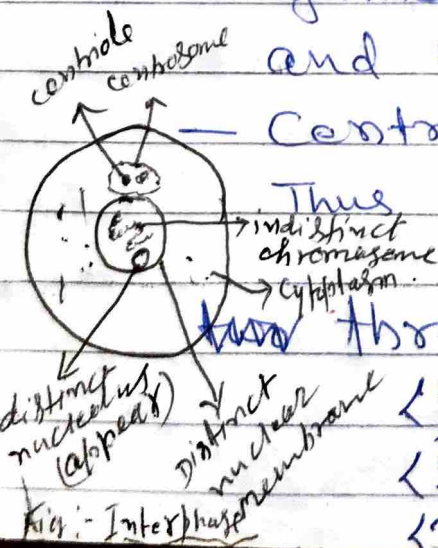 centriole
centrosome
and
— Centr
Thus
indistinct
chromosome
cytoplasm.
thr
distinct
nucleolus
(appear)
Distinct
nuclear
membrane
Fig :- Interphase